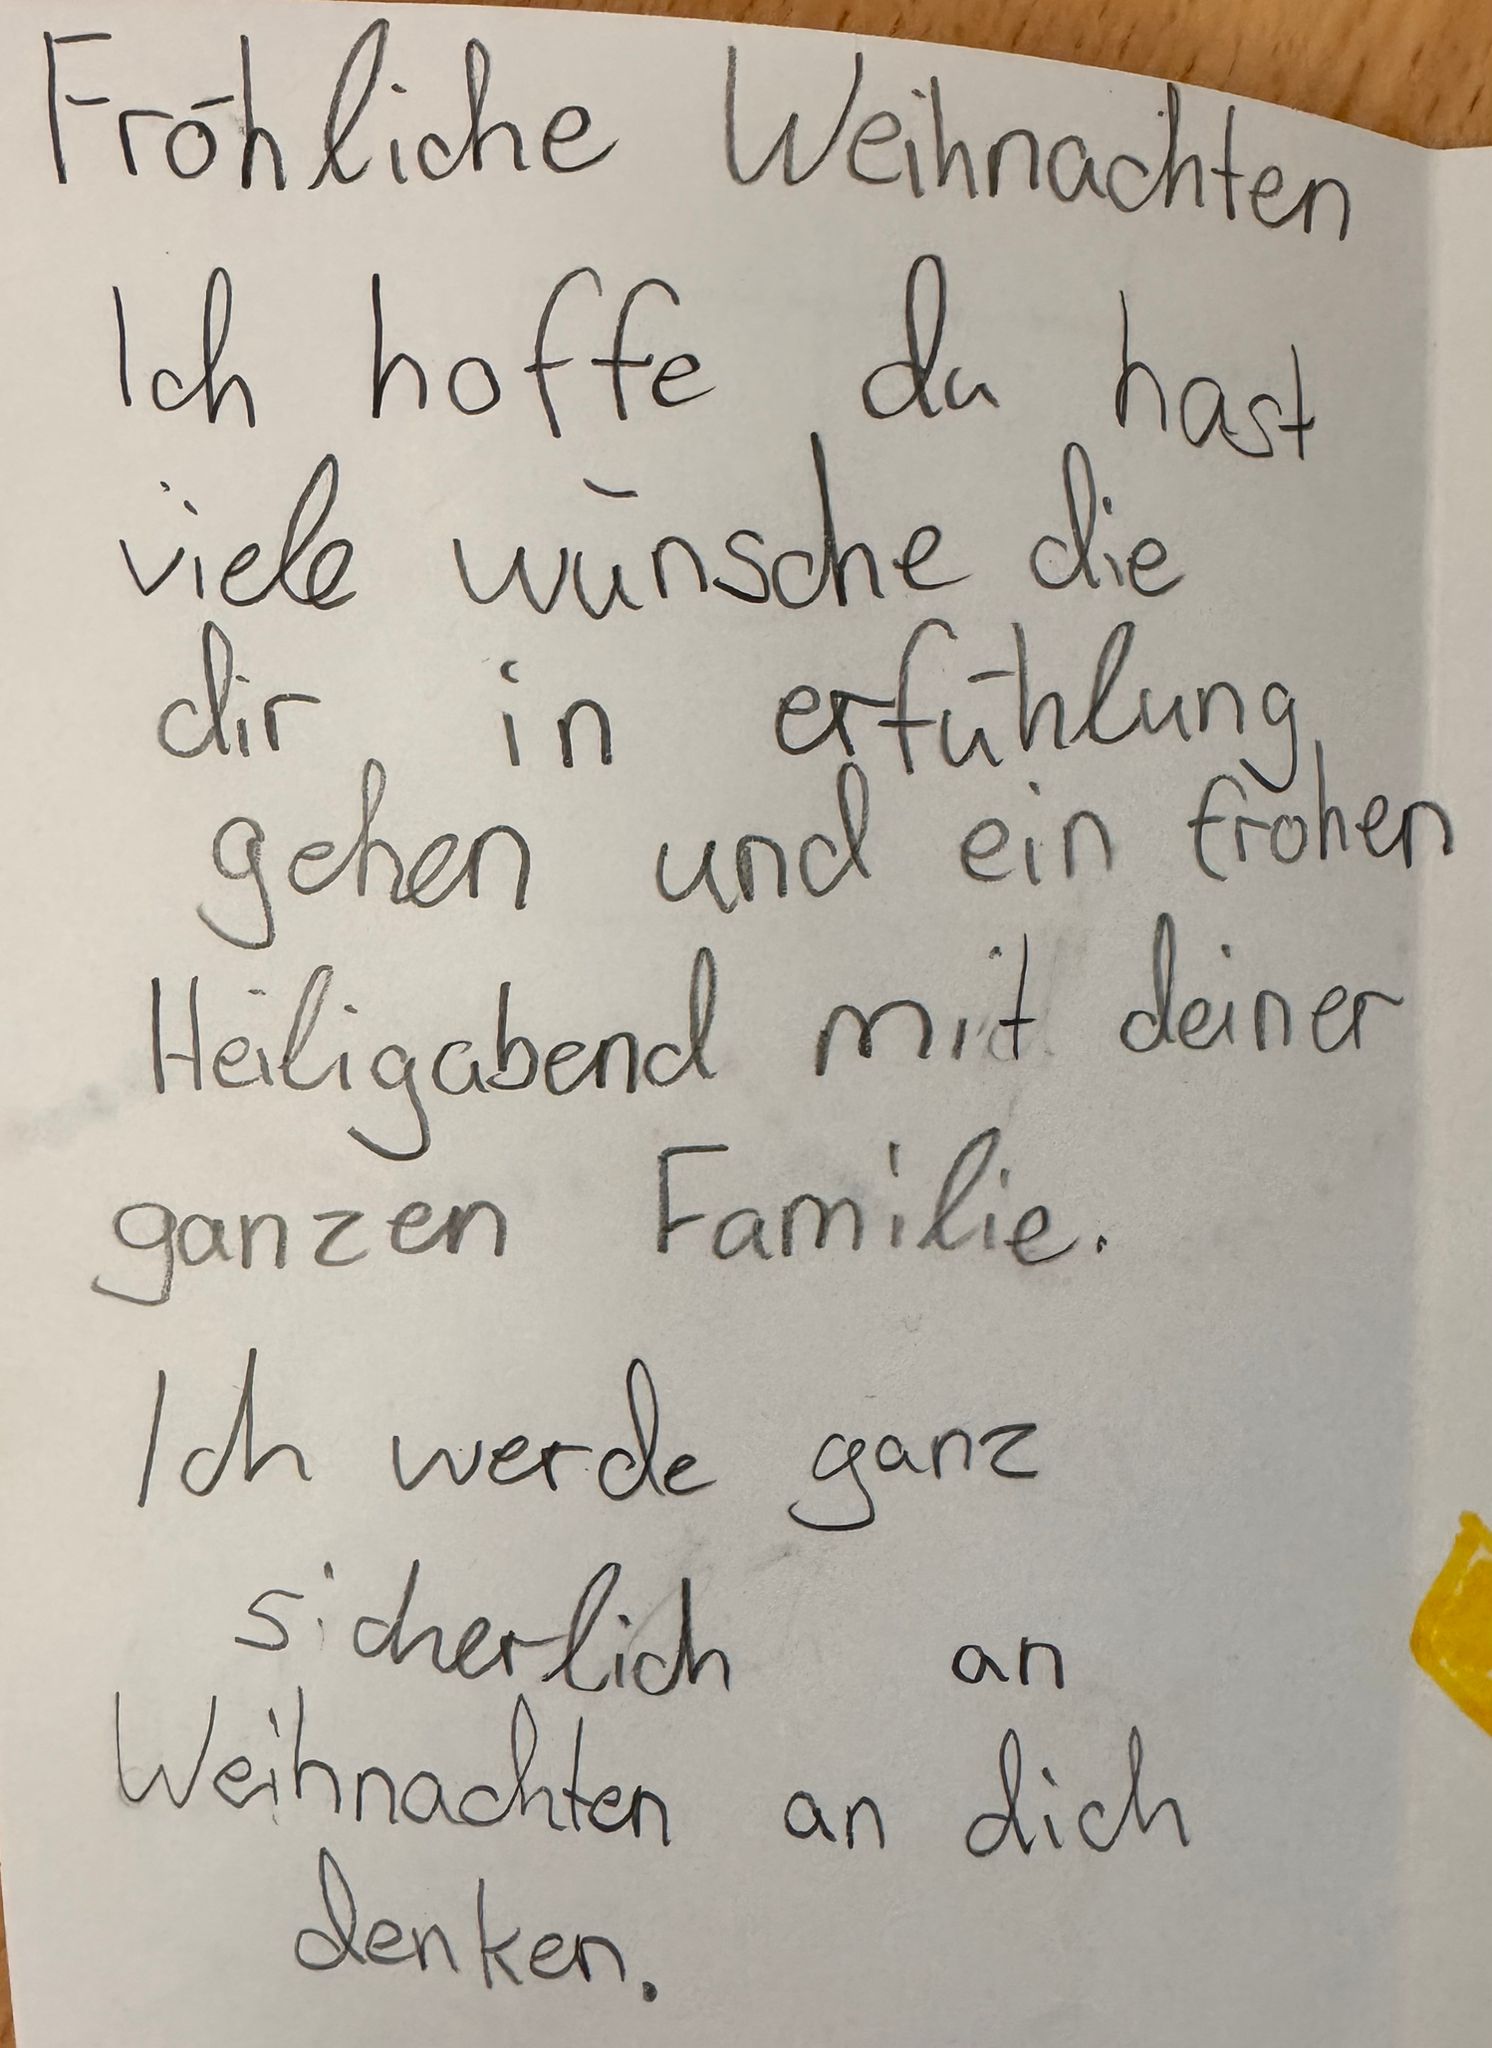 Fröhliche Weihnachten
Ich hoffe du hast
viele wünsche die
dir in erfühlung
gehen und ein frohen
Heiligabend mit deiner
ganzen Familie.
Ich werde ganz
sicherlich an
Weihnachten an dich
denken.